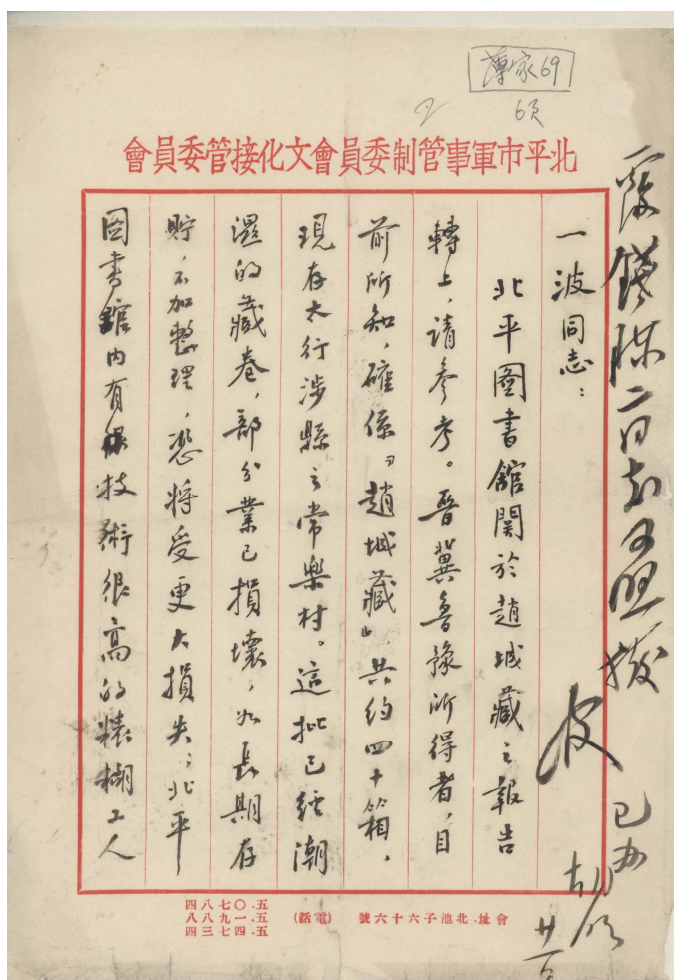 薄家69
6页
北平市軍事管制委員會文化接管委員會
一波同志：
北平圖書舘関於趙城藏之報告
轉上，請參考。晋冀魯豫所得者，目
前所知，確係「趙城藏」共約四十箱，
現存太行涉縣之常樂村。這批已經潮
濕的藏卷，部分業已損壞，如長期存
貯，不加整理，恐将受更大損失；北平
圖書舘内有技術很高的糊工人
已办
會址·北池子六十六號 （電話）
五·〇七八四
五·一九八八
五·四七三四